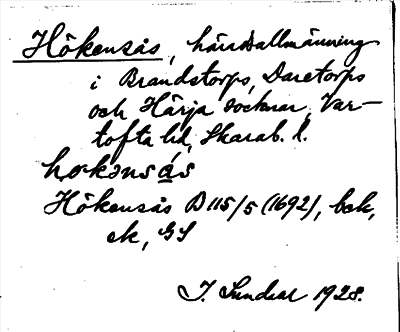 Hökensås, häradsallmänning
i Brandstorps, Daretorps
och Härja socknar, Var-
tofta hd, Skarab. l.
hokənsås
Hökensås B 115/5 (1692), bok,
ek, GS
I. Lundahl 1928.